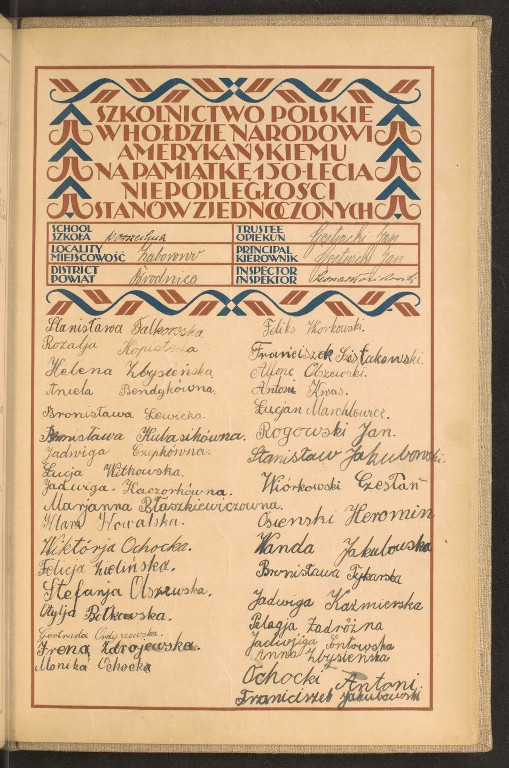 SZKOLNICTWO POLSKIE
W HOŁDZIE NARODOWI
AMERYKAŃSKIEMU
NA PAMIĄTKĘ 150-LECIA
NIEPODLEGŁOŚCI
STANÓW ZJEDNOCZONYCH
SCHOOL
SZKOŁA powszechna
TRUSTEE
OPIEKUN Jan
LOCALITY
MIEJSCOWOŚĆ Zaborowo
PRINCIPAL
KIEROWNIK Jan
DISTRICT
POWIAT Brodnica
INSPECTOR
INSPEKTOR
Stanisława Falkowska
Rozalja Kopistecka
Helena Zbysieńska
Aniela Bendykówna.
Bronisława Lewicka.
Bronisława Kubasikówna.
Jadwiga Czypkówna.
Łucja Witkowska.
Jadwiga Kaczorkówna.
Marjanna Błaszkiewiczówna.
Klara Kowalska.
Wiktórja Ochocka.
Felicja Zielińska.
Stefanja Olszewska.
Otylja Bitkowska.
Gertruda
Irena Zdrojewska.
Monika Ochocka
Feliks Wiorkowski.
Franciszek
Alfons Olszewski.
Antoni Kwas.
Lucjan Marchlewicz.
Rogowski Jan.
Stanisław Jakubowski.
Wiórkowski Czesłań
Osienski Heromin
Wanda Jakubowska
Bronisława
Jadwiga Kaźmierska
Pelagja Zadróżna
Jadwjiga
Anna Zbysieńska
Ochocki Antoni
Franciszek Jakubowski